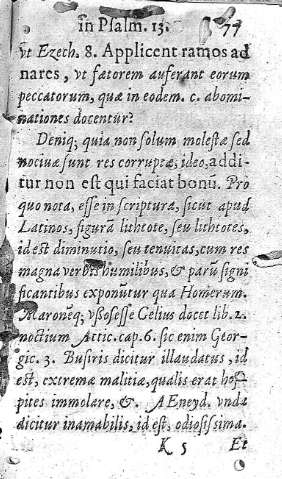 in Psalm. 13. 77
vt Ezech. 8. Applicent ramos ad
nares, vt fætorem auferant eorum
peccatorum, quæ in eodem. c. abomi-
nationes docentur?
Deniq; quia non solum molestæ sed
nociuæ sunt res corruptæ, ideo, addi-
tur non est qui faciat bonū. Pro
quo nota, esse in scripturæ, sicut apud
Latinos, figurā lithote, seu lithotes,
id est diminutio, seu tenuitas, cum res
magna verbis humilibus, & parū signi
ficantibus exponūtur qua Homerum.
Maroneq; vsos esse Celius docet lib. 2.
noctium Attic. cap. 6. sic enim Geor-
gic. 3. Busiris dicitur illaudatus, id
est, extremæ malitiæ, qualis erat hos-
pites immolare, &. AEneyd. vnda
dicitur inamabilis, id est, odiosissima.
K 5 Et